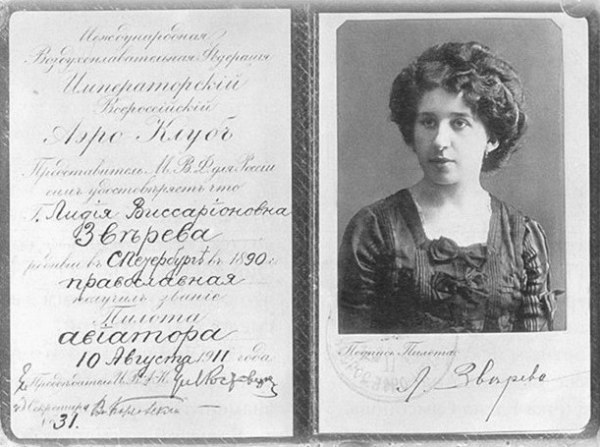 Международная
Воздухоплавательная Федерація
Императорскій
Всероссійскій
Аэро Клубъ
Представитель М. В. Ф. для Россіи
симъ удостовѣряетъ что
Г. Лидія Виссаріоновна
Звѣрева
родивш въ С.Петербургѣ въ 1890 г.
православная
получилъ званіе
Пилота
авіатора
10 Августа 1911 года
Секретарь
31.
Подпись Пилота:
Л. Звѣрева